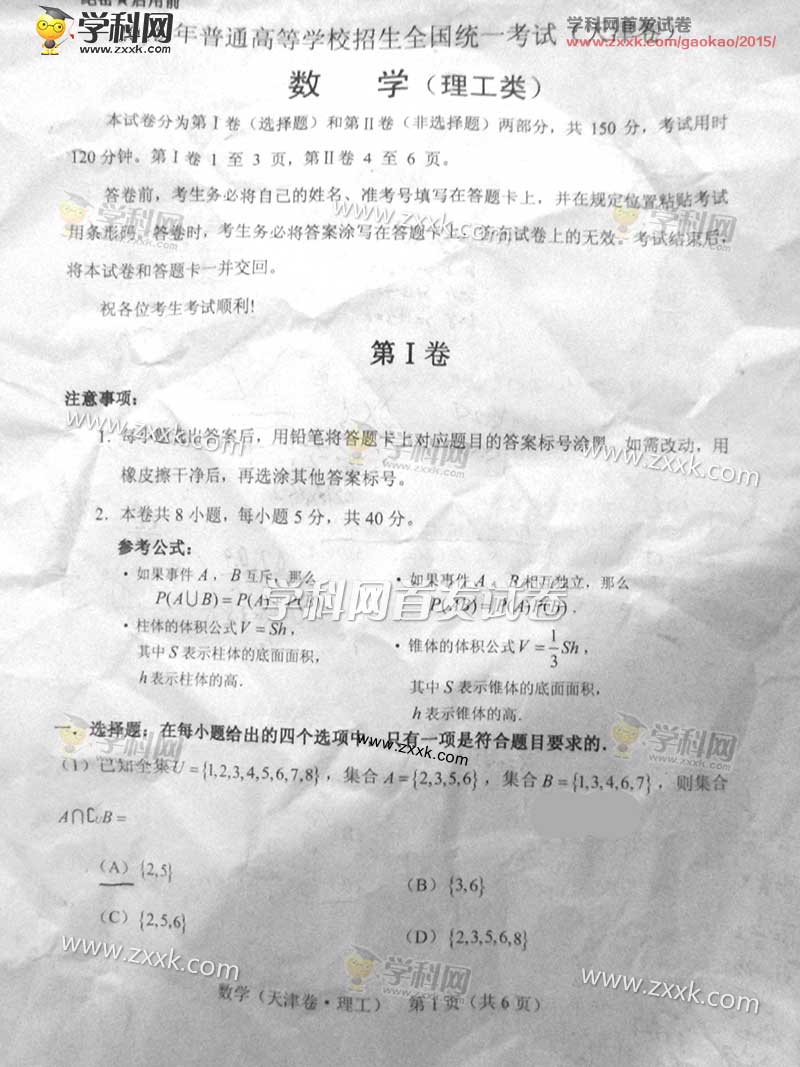 绝密★启用前
学科网首发试卷
www.zxxk.com/gaokao/2015/
学科网
年普通高等学校招生全国统一考试（天津卷）
数 学（理工类）
本试卷分为第Ⅰ卷（选择题）和第Ⅱ卷（非选择题）两部分，共 150 分，考试用时
120 分钟。第Ⅰ卷 1 至 3 页，第Ⅱ卷 4 至 6 页。
答卷前，考生务必将自己的姓名、准考号填写在答题卡上，并在规定位置粘贴考试
学科网
www.zxxk.com
学科网
用条形码。答卷时，考生务必将答案涂写在答题卡上，答在试卷上的无效。考试结束后，
将本试卷和答题卡一并交回。
祝各位考生考试顺利!
第Ⅰ卷
注意事项：
1. 每小题选出答案后，用铅笔将答题卡上对应题目的答案标号涂黑。如需改动，用
www.zxxk.com
学科网
www.zxxk.com
橡皮擦干净后，再选涂其他答案标号。
2. 本卷共 8 小题，每小题 5 分，共 40 分。
参考公式：
· 如果事件 A ，B 互斥，那么
· 如果事件 A 、B 相互独立，那么
P(A∪B) = P(A)+P(B) .
P(AB) = P(A)P(B) .
学科网首发试卷
· 柱体的体积公式 V = Sh ,
· 锥体的体积公式 V = 1/3 Sh ,
其中 S 表示柱体的底面面积，
其中 S 表示锥体的底面面积，
h 表示柱体的高.
h 表示锥体的高.
学科网
www.zxxk.com
学科网
一．选择题：在每小题给出的四个选项中，只有一项是符合题目要求的．
（1）已知全集 U = {1,2,3,4,5,6,7,8} ，集合 A = {2,3,5,6} ，集合 B = {1,3,4,6,7} ，则集合
A∩∁UB =
（A）{2,5}
（B）{3,6}
（C）{2,5,6}
（D）{2,3,5,6,8}
www.zxxk.com
学科网
www.zxxk.com
数学（天津卷·理工） 第 1 页（共 6 页）